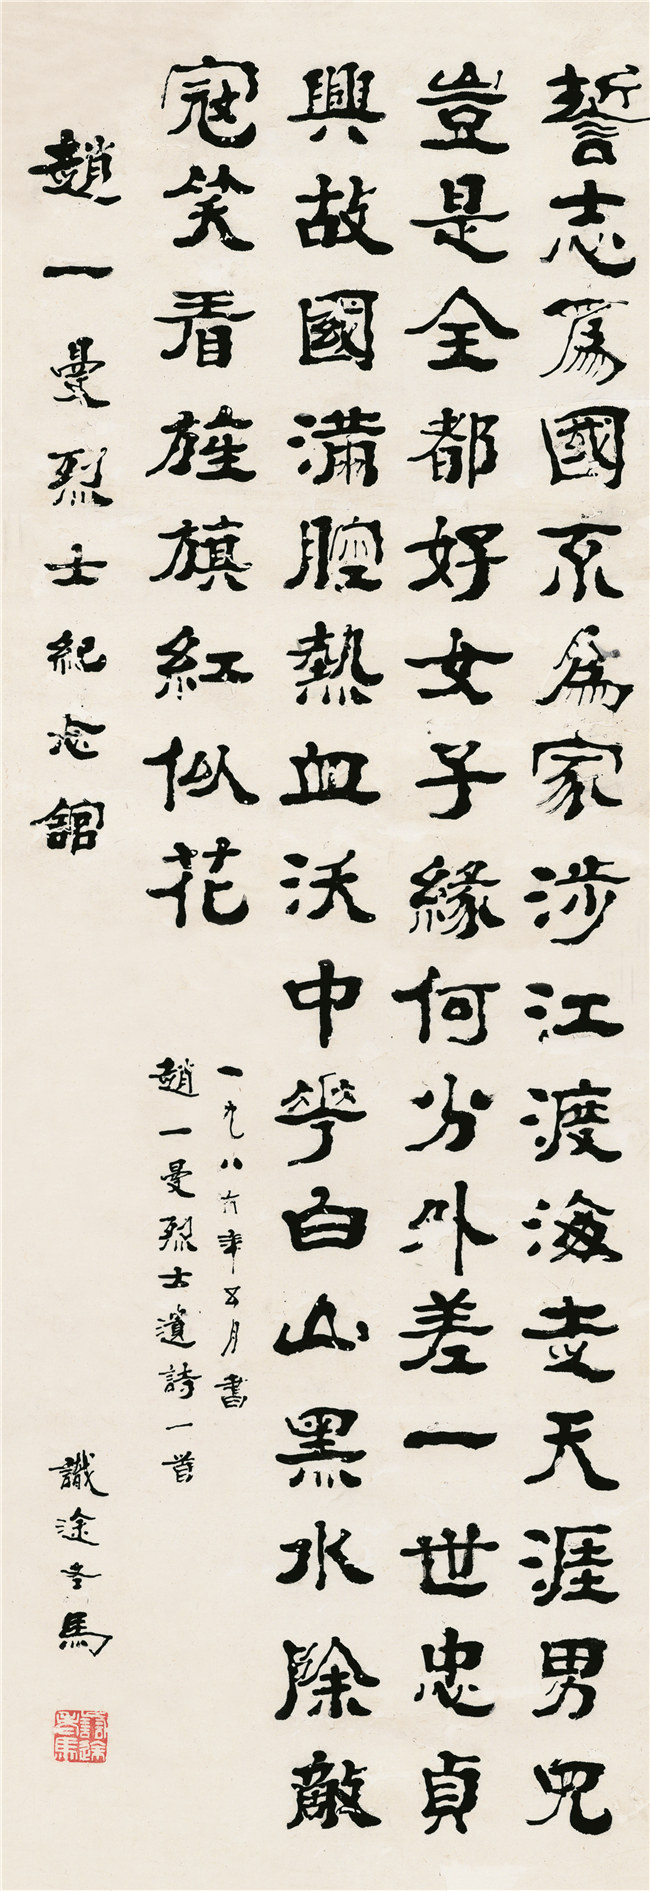 誓志爲國不爲家涉江渡海走天涯男兒
豈是全都好女子緣何分外差一世忠貞
興故國滿腔熱血沃中華白山黑水除敵
寇笑看旌旗紅似花
一九八六年五月書
趙一曼烈士遺詩一首
趙一曼烈士紀念館
識途老馬
識途老馬